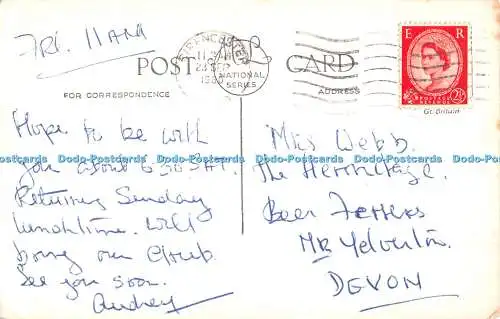 FRI. 11AM
CIRENCESTER
POST CARD
NATIONAL
SERIES
FOR CORRESPONDENCE
ADDRESS
E R
POSTAGE
REVENUE
2½D
Gt. Britain
Hope to be with
you about 6.30 SAT.
Returning Sunday
lunchtime. Will
bring our Grub.
See you soon.
Audrey
Mrs Webb.
The Hermitage.
Beer Ferrers
Nr Yelverton.
DEVON
Dodo-Postcards Dodo-Postcards Dodo-Postcards Dodo-Postcards Dodo-Postcards